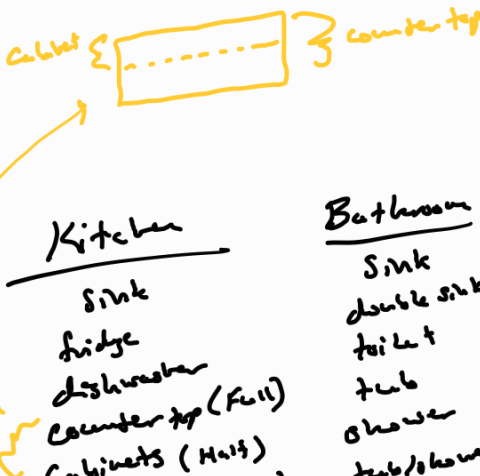 cabinet
counter top
Kitchen
sink
fridge
dishwasher
counter top (Full)
Cabinets (Half)
Bathroom
Sink
double sink
toilet
tub
shower
tub/show